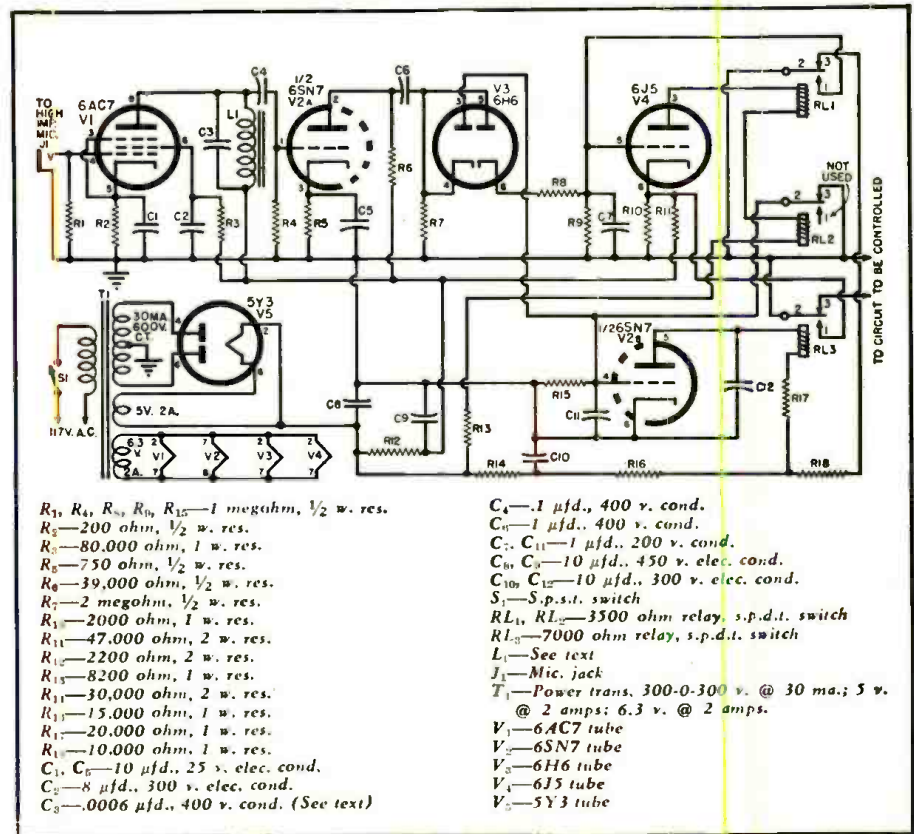 TO
HIGH
IMP.
MIC.
J1
6AC7
V1
C4
L1
C3
1/2
6SN7
V2A
C6
V3
6H6
6J5
V4
RL1
NOT
USED
RL2
RL3
TO CIRCUIT TO BE CONTROLLED
R1
R2
C1
C2
R3
R4
R5
C5
R6
R7
R8
R9
C7
R10
R11
T1
30MA.
600V.
C.T.
5Y3
V5
5V. 2A.
S1
117V. A.C.
6.3
V.
2A.
V1
V2
V3
V4
C8
C9
R12
R13
R14
C10
R15
C11
1/2 6SN7
V2B
C12
R16
R17
R18
R1, R4, R8, R9, R15—1 megohm, 1/2 w. res.
R2—200 ohm, 1/2 w. res.
R3—80,000 ohm, 1 w. res.
R5—750 ohm, 1/2 w. res.
R6—39,000 ohm, 1/2 w. res.
R7—2 megohm, 1/2 w. res.
R10—2000 ohm, 1 w. res.
R11—47,000 ohm, 2 w. res.
R12—2200 ohm, 2 w. res.
R13—8200 ohm, 1 w. res.
R14—30,000 ohm, 2 w. res.
—15,000 ohm, 1 w. res.
R17—20,000 ohm, 1 w. res.
R18—10,000 ohm, 1 w. res.
C1, C5—10 µfd., 25 v. elec. cond.
C2—8 µfd., 300 v. elec. cond.
C3—.0006 µfd., 400 v. cond. (See text)
C4—.1 µfd., 400 v. cond.
C6—1 µfd., 400 v. cond.
C7, C11—1 µfd., 200 v. cond.
C8, C9—10 µfd., 450 v. elec. cond.
C10, C12—10 µfd., 300 v. elec. cond.
S1—S.p.s.t. switch
RL1, RL2—3500 ohm relay, s.p.d.t. switch
RL3—7000 ohm relay, s.p.d.t. switch
L1—See text
J1—Mic. jack
T1—Power trans. 300-0-300 v. @ 30 ma.; 5 v.
@ 2 amps; 6.3 v. @ 2 amps.
V1—6AC7 tube
V2—6SN7 tube
V3—6H6 tube
V4—6J5 tube
V5—5Y3 tube